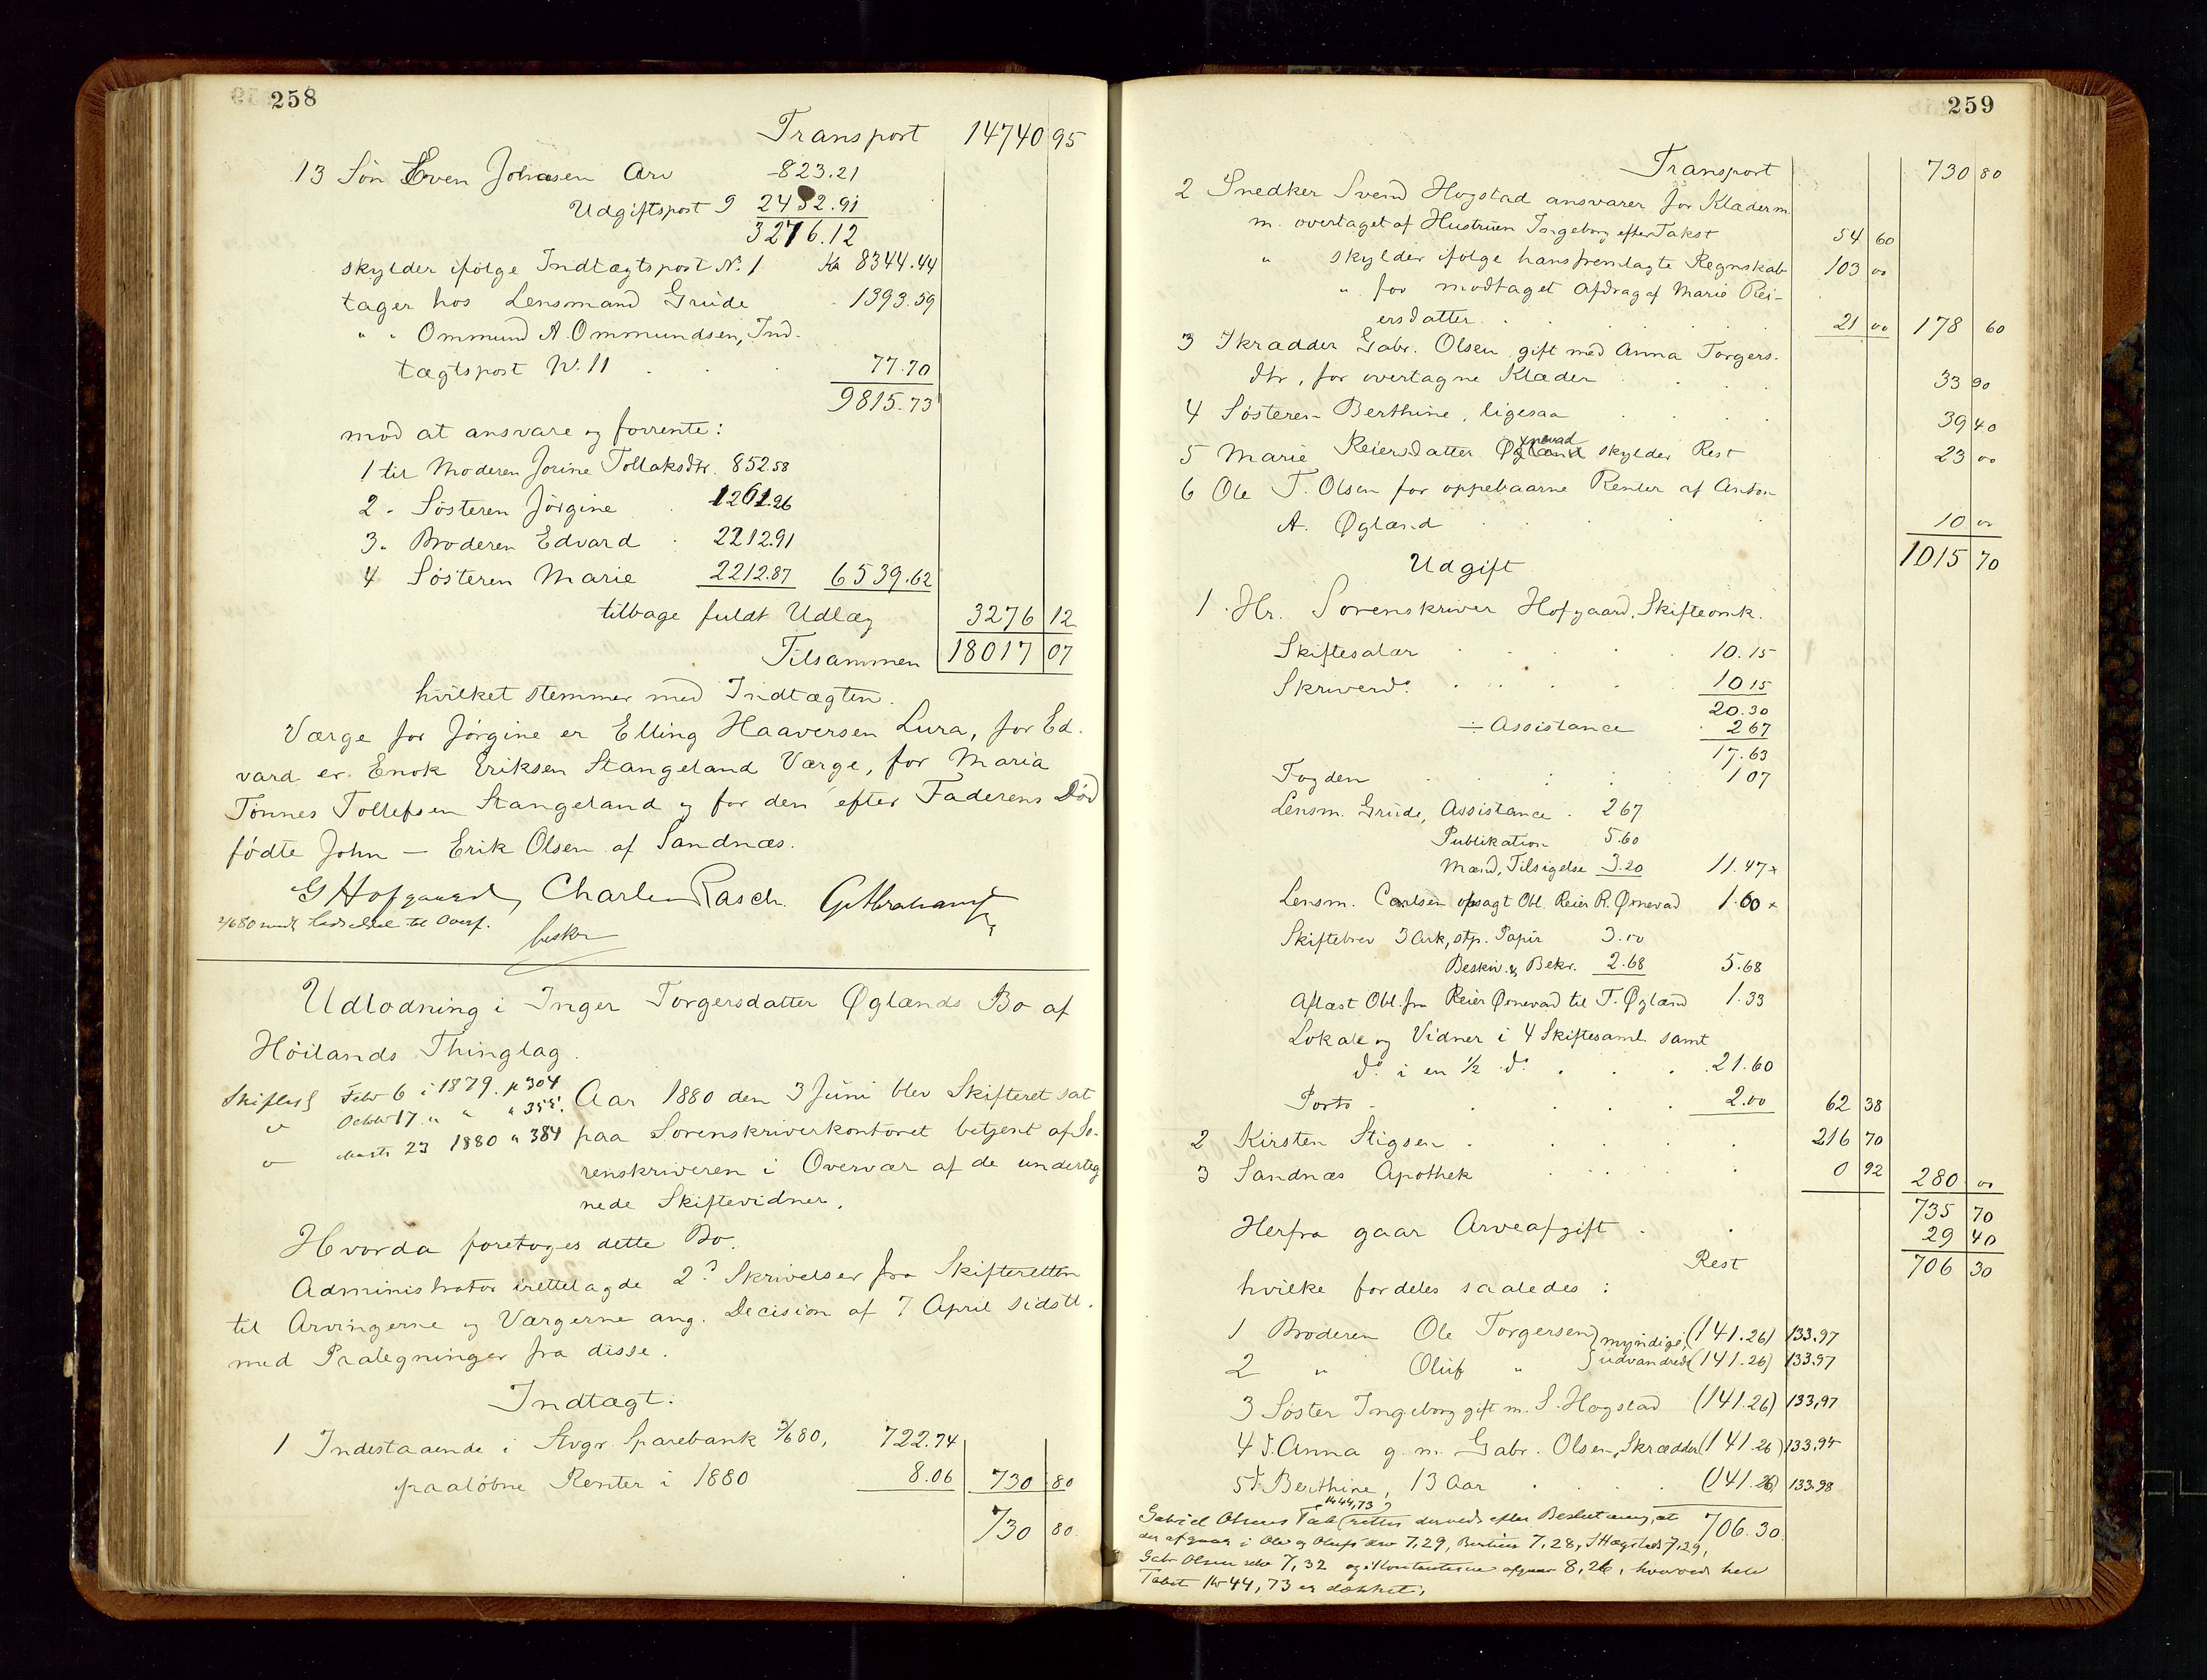 258
Transport 14740 95
13 Søn Even Johnsen Arv 823.21
Udgiftspost 9 2452.91
3276.12
skylder ifølge Indtægtspost No. 1 Kr 8344.44
tager hos Lensmand Grude 1393.59
" " Ommund A. Ommundsen, Ind-
tægtspost No. 11 77.70
9815.73
mod at ansvare og forrente:
1 til Moderen Jorine Tollaksdtr. 852.58
2 " Søsteren Jørgine 1261.26
3 " Broderen Edvard 2212.91
4 Søsteren Marie 2212.87 6539.62
tilbage fuldt Udlæg 3276 12
Tilsammen 18017 07
hvilket stemmer med Indtægten.
Værge for Jørgine er Elling Haaversen Lura, for Ed-
vard er Enok Eriksen Stangeland Værge, for Maria
Tønnes Tollefsen Stangeland og for den efter Faderens Død
fødte John — Erik Olsen af Sandnæs.
G Hofgaard, Charles Rasch. G Abrahamsen
Udlodning i Inger Torgersdatter Øglænds Bo af
Høilands Thinglag.
Skiftes Febr 6 i 1879. p 304
" Octbr 17 " " " 355.
" Marts 23 1880 " 384
Aar 1880 den 3 Juni blev Skifteret sat
paa Sorenskriverkontoret betjent af So-
renskriveren i Overvær af de underteg
nede Skiftevidner.
Hvorda foretoges dette Bo.
Administrator irettelagde 2de Skrivelser fra Skifteretten
til Arvingerne og Værgerne ang. Decision af 7 April sidstl.
med Paategninger fra disse.
Indtægt:
1 Indestaaende i Stvgr Sparebank 3/6 80, 722.74
paaløbne Renter i 1880 8.06 730 80
730 80
259
Transport 730 80
2 Snedker Svend Hogstad ansvarer for Klæder m.
m. overtaget af Hustruen Ingeborg efter Takst 54 60
" skylder ifølge hans fremlagte Regnskab 103 00
" for modtaget Afdrag af Marie Rei-
ersdatter 21 00 178 60
3 Skrædder Gabr. Olsen gift med Anna Torgers-
dtr, for overtagne Klæder 33 90
4 Søsteren Berthine, ligesaa 39 40
5 Marie Reiersdatter Ørnevad skylder Rest 23 00
6 Ole T. Olsen for oppebaarne Renter af Anton
A. Øglænd 10 00
1015 70
Udgift
1. Hr. Sorenskriver Hofgaard, Skifteomk.
Skiftesalær 10.15
Skriverdo. 10 15
20.30
÷ Assistance 2 67
17.63
Fogden 1 07
Lensm. Grude, Assistance 2 67
Publikation 5.60
Mænd, Tilsigelse 3.20 11.47 x
Lensm. Carlsen opsagt Obl. Reier R. Ørnevad 1.60 x
Skiftebrev 3 Ark, stp. Papir 3.00
Beskr. & Bekr. 2.68 5.68
Aflæst Obl. fra Reier Ørnevad til T. Øglænd 1.33
Lokale og Vidner i 4 Skiftesaml. samt
do. i en 1/2 do. 21.60
Porto 2.00 62 38
2 Kirsten Stigsen 216 70
3 Sandnæs Apothek 0 92 280 00
735 70
Herfra gaar Arveafgift 29 40
Rest 706 30
hvilke fordeles saaledes:
1 Broderen Ole Torgersen } myndige, (141.26) 133.97
2 " Oluf " } udvandrede (141.26) 133.97
3 Søster Ingeborg gift m. S. Hogstad (141.26) 133,97
4 do. Anna g. m. Gabr. Olsen, Skrædder (141.26) 133.94
5 do. Berthine, 13 Aar (141.26) 133.98
706.30
Gabriel Olsens Tab (kr 44,73) rettes derved efter Beslutning, at
der afgaar i Ole og Olufs Arv 7,29, Bertines 7,28, S Høgstads 7,29,
Gabr Olsen selv 7,32 og i Kontanterne afgaar 8,26, hvorved hele
Tabet Kr 44,73 er dækket.